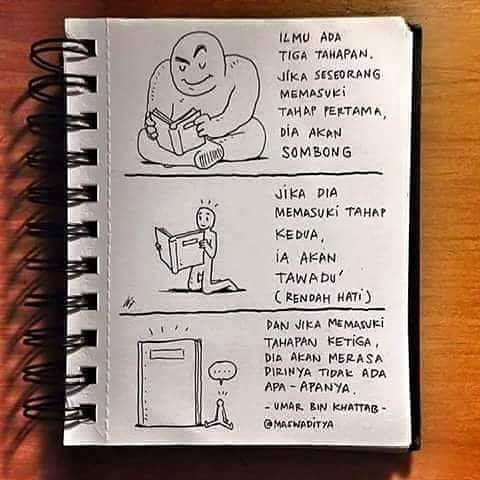 ILMU ADA
TIGA TAHAPAN.
JIKA SESEORANG
MEMASUKI
TAHAP PERTAMA,
DIA AKAN
SOMBONG
JIKA DIA
MEMASUKI TAHAP
KEDUA,
IA AKAN
TAWADU'
(RENDAH HATI)
DAN JIKA MEMASUKI
TAHAPAN KETIGA,
DIA AKAN MERASA
DIRINYA TIDAK ADA
APA-APANYA.
- UMAR BIN KHATTAB -
@MASWADITYA